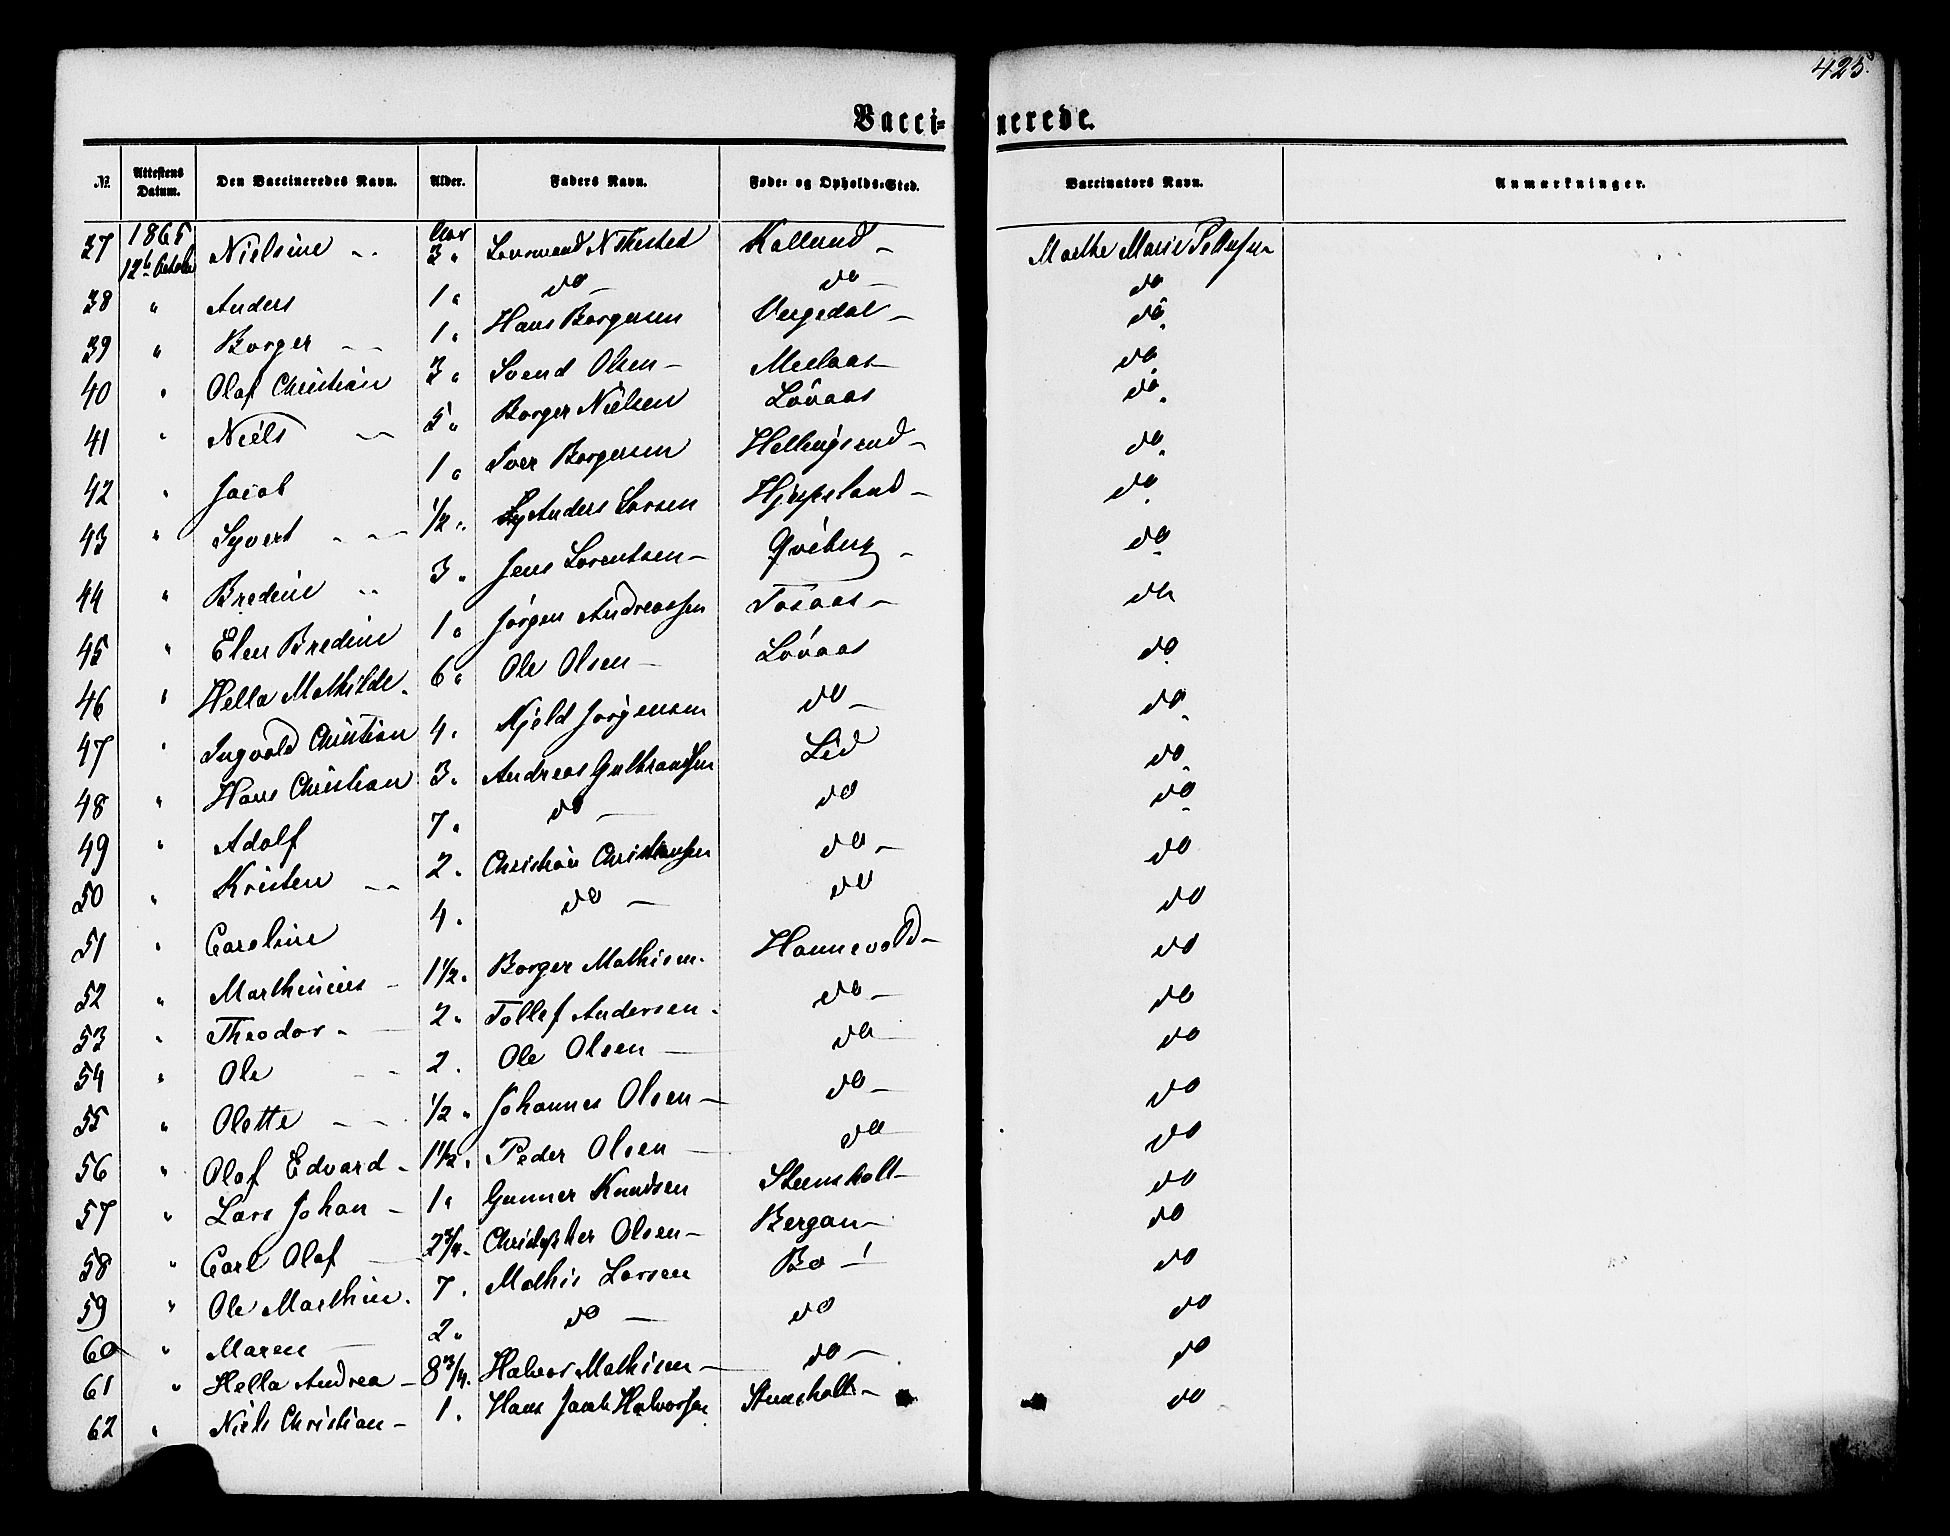 425.
Vacci- nerede.
№ Attestens Datum. Den Vaccineredes Navn. Alder. Faders Navn. Føde- og Opholds-Sted. Vaccinators Navn. Anmærkninger.
37 1865 12te October Nielsine - - Aar 3 " Kallerud - Marthe Marie Pettersen
38 " Anders 1 " do - do - do
39 " Borger - - 1 " Hans Borgersen Vergedal - do.
40 " Olaf Christian 3 " Svend Olsen - Meelaas - do
41 " Niels - 5 " Borger Nielsen Løvaas do.
42 " Jacob 1 " Iver Borgersen Hellingsrud - do.
43 " Syvert - - - 1/2 " Anders Larsen do.
44 " Bredine - - 3 " Jens Lorentsen - Qviberg - do
45 " Elen Bredine 1 " Jørgen Andreassen Tosaas - do
46 " Hella Mathilde. 6 " Ole Olsen - Løvaas do.
47 " Ingvald Christian 4 " Kjeld Jørgensen do - do.
48 " Hans Christian 3 " Andreas Gulbrandsen Lid do.
49 " Adolf 7 " do - do do
50 " Kristen - - 2 " Christian Christiansen do - do
51 " Caroline 4 " do - do do
52 " Marthinius - 1 1/2 " Borger Mathisen. Hannevold - do
53 " Theodor - - 2 " Tollef Andersen. do - do
54 " Ole - - 2 " Ole Olsen - do do
55 " Olette - - 1/2 " Johannes Olsen - do - do
56 " Olaf Edvard - 1 1/2 " Peder Olsen - do do
57 " Lars Johan - 1 " Gunner Knudsen Steensholt - do
58 " Carl Olaf - 2 3/4 " Christopher Olsen - Bergan - do
59 " Ole Marthin. 7 " Mathis Larsen Bø - do
60 " Maren - 2 " do - do do
61 " Hella Andrea - 8 3/4 " Halvor Mathisen - do - do
62 " Niels Christian - 1 " Hans Jacob Halvorsen Steensholt - do